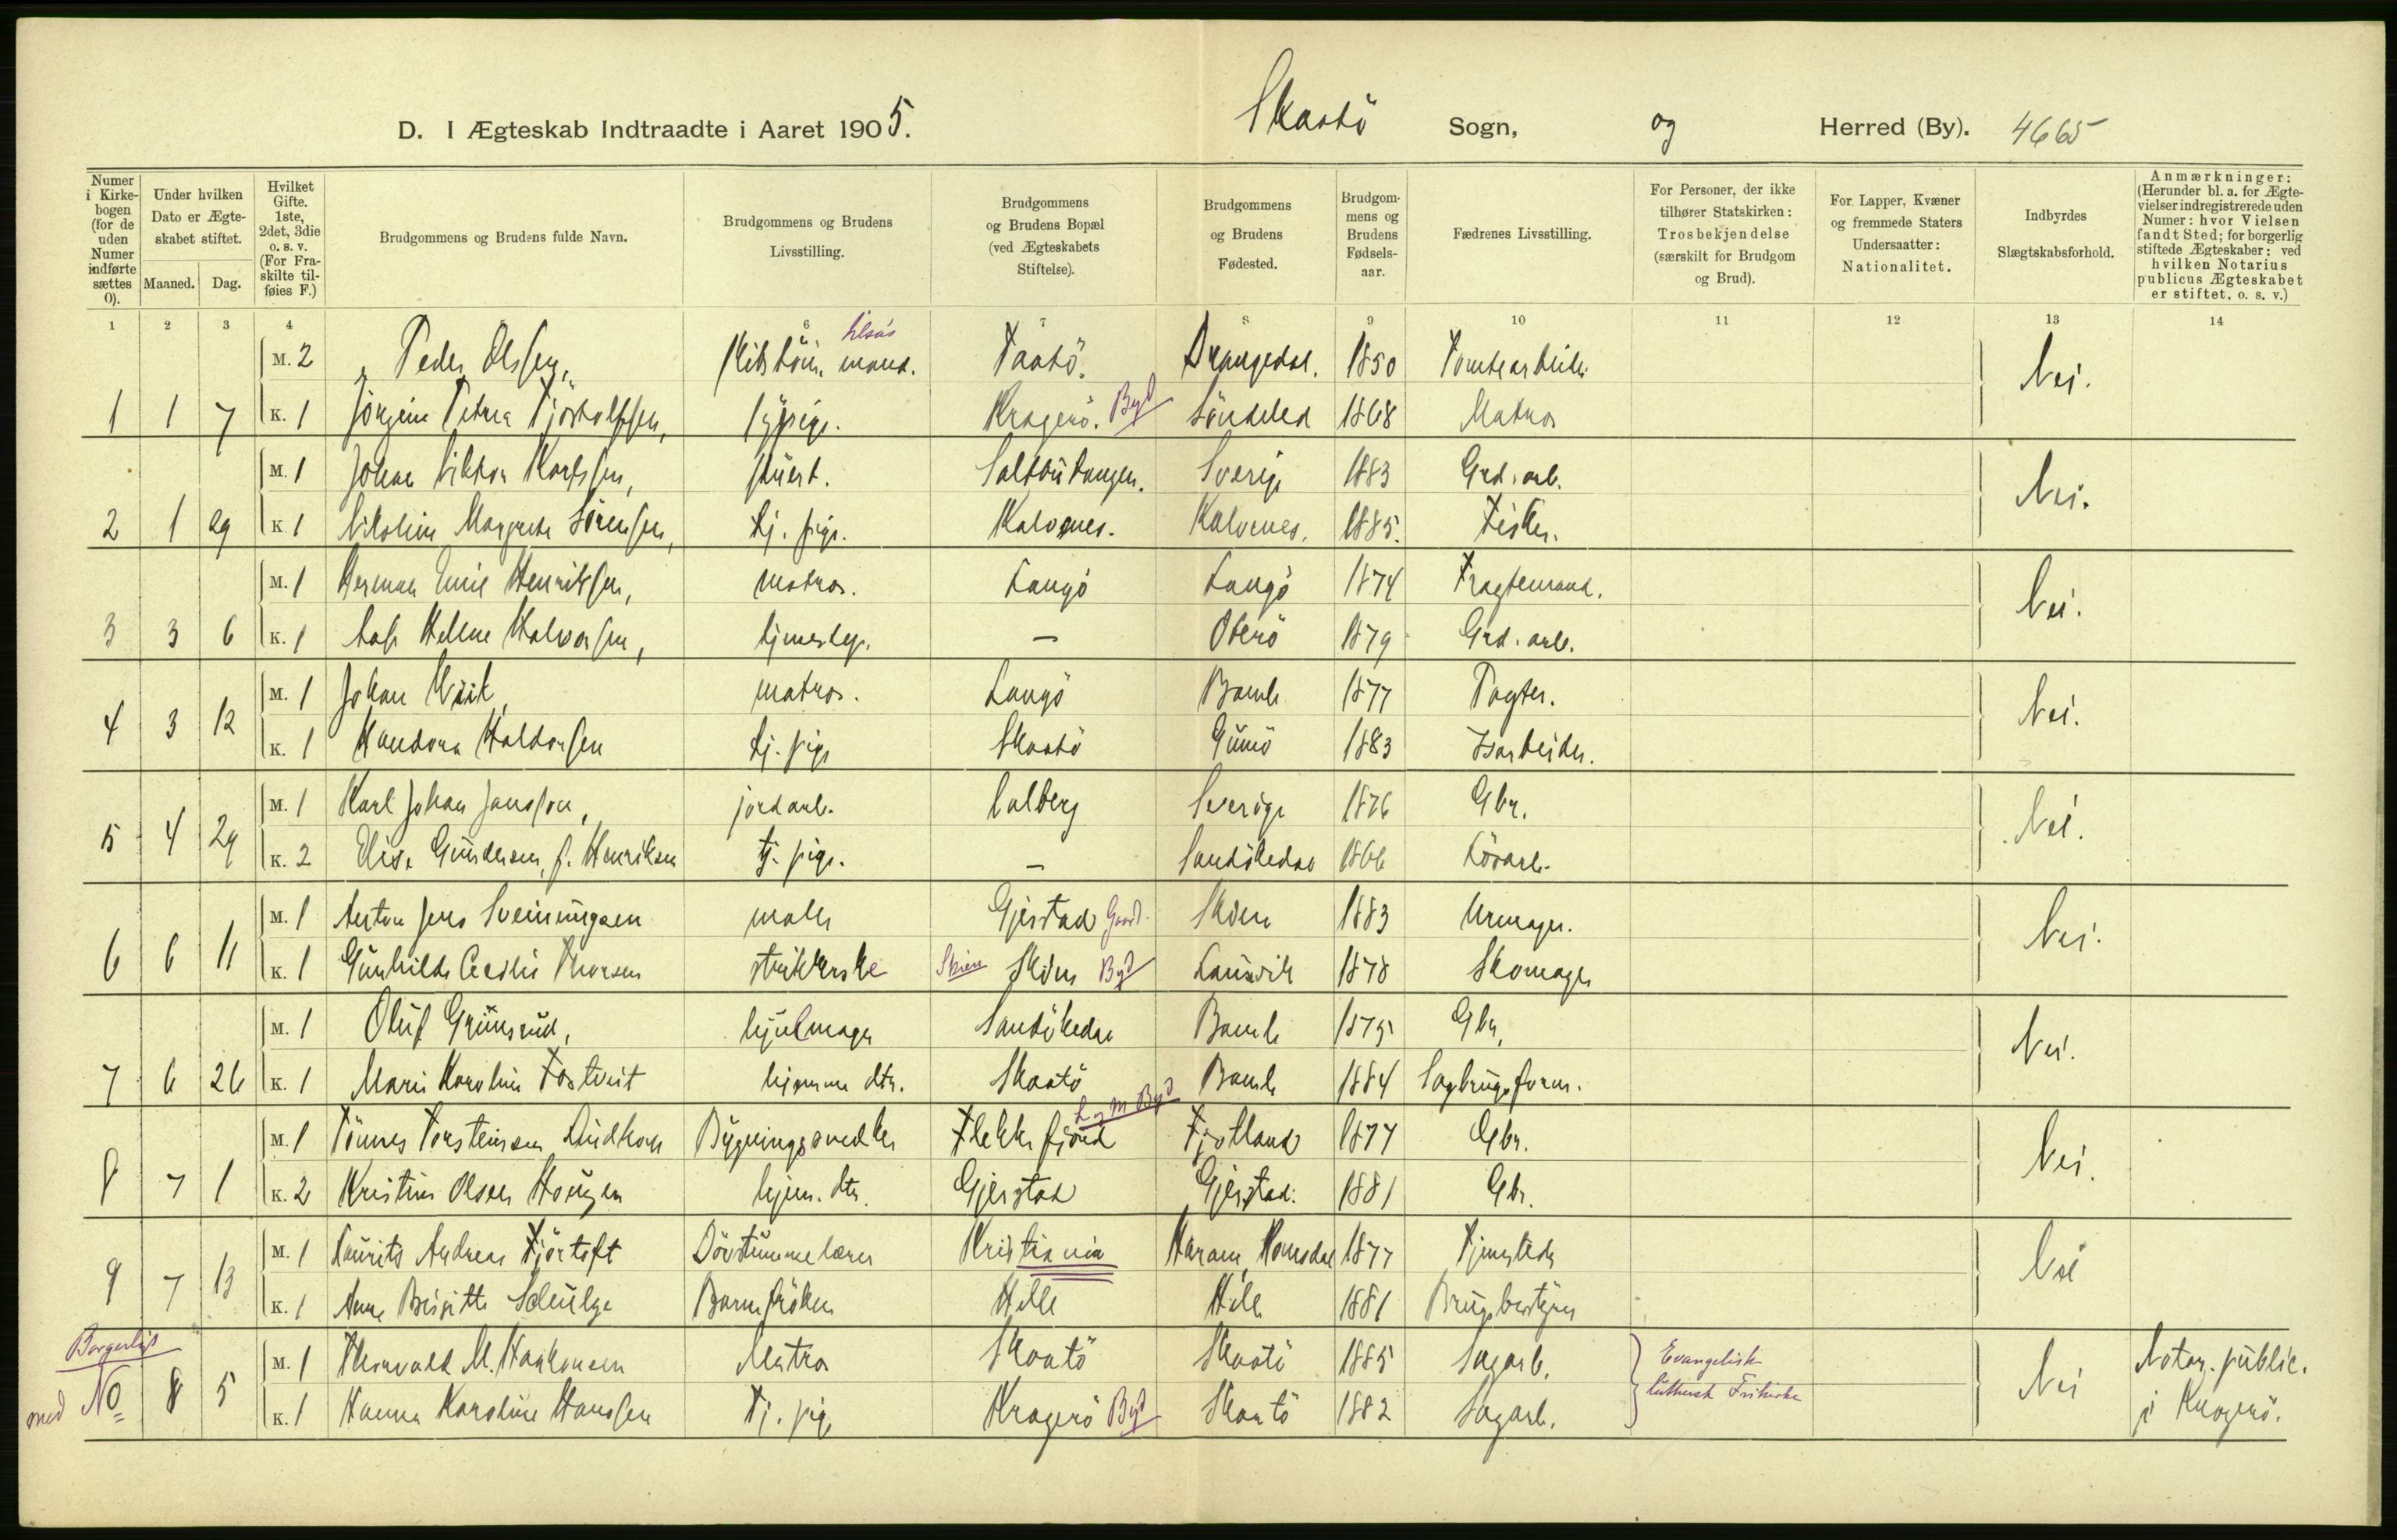 D. I Ægteskab Indtraadte i Aaret 1905. Skaatö Sogn, og Herred (By). 4665
Numer i Kirkebogen (for de uden Numer indførte sættes 0).
Under hvilken Dato er Ægteskabet stiftet.
Maaned. Dag.
Hvilket Gifte. 1ste, 2det, 3die o. s. v. (For Fraskilte tilføies F.)
Brudgommens og Brudens fulde Navn.
Brudgommens og Brudens Livsstilling.
Brudgommens og Brudens Bopæl (ved Ægteskabets Stiftelse).
Brudgommens og Brudens Fødested.
Brudgommens og Brudens Fødselsaar.
Fædrenes Livsstilling.
For Personer, der ikke tilhører Statskirken: Trosbekjendelse (særskilt for Brudgom og Brud).
For Lapper, Kvæner og fremmede Staters Undersaatter: Nationalitet.
Indbyrdes Slægtskabsforhold.
Anmærkninger: (Herunder bl. a. for Ægtevielser indregistrerede uden Numer: hvor Vielsen fandt Sted; for borgerlig stiftede Ægteskaber: ved hvilken Notarius publicus Ægteskabet er stiftet, o. s. v.)
1 2 3 4 6 7 8 9 10 11 12 13 14
M. 2 Peder Olssen, mand. Taatö. Drangedal. 1850 Tomtearbeider Nei.
1 1 7 K. 1 Jörgine Petrea Tjostolfsen, sypige. Kragerö. Byd Söndeled 1868 Matros
M. 1 Johan Viktor Karlsson, stuert. Saltbutangen. Sverige 1883 Grd. arb. Nei.
2 1 29 K. 1 Nikoline Margrete Sörensen, tj. pige. Kalvenes. Kalvenes. 1885. Fisker.
M. 1 Herman Emil Henriksen, matros. Langö Langö 1874 Fragtemand. Nei.
3 3 6 K. 1 Hellene Halvorsen, — Oterö 1879 Grd. arb.
M. 1 Johan matros. Langö Bamle 1877 Pagter. Nei.
4 3 12 K. 1 Handora Haldorsen tj. pige Skaatö Gumö 1883 Isarbeider.
M. 1 Karl Johan Jansson, jordarb. Valberg Sverige 1876 Gbr. Nei.
5 4 29 K. 2 Elise Gundersen, f. Henriksen tj. pige. — Sandökedal 1866 Lösarb.
M. 1 Anton Jens Sveinungsen maler Gjerstad Gaard. Skien 1883 Urmager. Nei.
6 6 11 K. 1 Gunhilde Cecilie Thorsen strikkerske Skien Skien Byd Laurvik 1878 Skomager
M. 1 Oluf Grumsrud, hjulmager Sandökedal Bamle 1875 Gbr, Nei.
7 6 26 K. 1 Marie Karoline Fostveit hjemme dtr. Skaatö Bamle 1884 Sagbrugsform.
M. 1 Tönnes Torsteinsen Bygningssnedker Flekkefjord L. og M. Byd Fjotland 1877 Gbr. Nei.
8 7 1 K. 2 Kristine Olsen Haugen hjem. dtr. Gjerstad Gjerstad. 1881 Gbr.
M. 1 Laurits Andreas Fjörtoft Dövstummelærer Kristiania Haram, Romsdal 1877 Nei
9 7 13 K. 1 Anne Birgitte Schulze Barnefröken Helle Helle 1881 Brugsbestyrer
Borgerligt
M. 1 Thorvald M. Haakonsen Matros Skaatö Skaatö 1885 Sagarb. Evangelisk luthersk Frikirke Nei Notar. public. i Kragerö.
med No 8 5 K. 1 Hanna Karoline Hanssen Tj. pige Kragerö Byd Skaatö 1882 Sagarb.